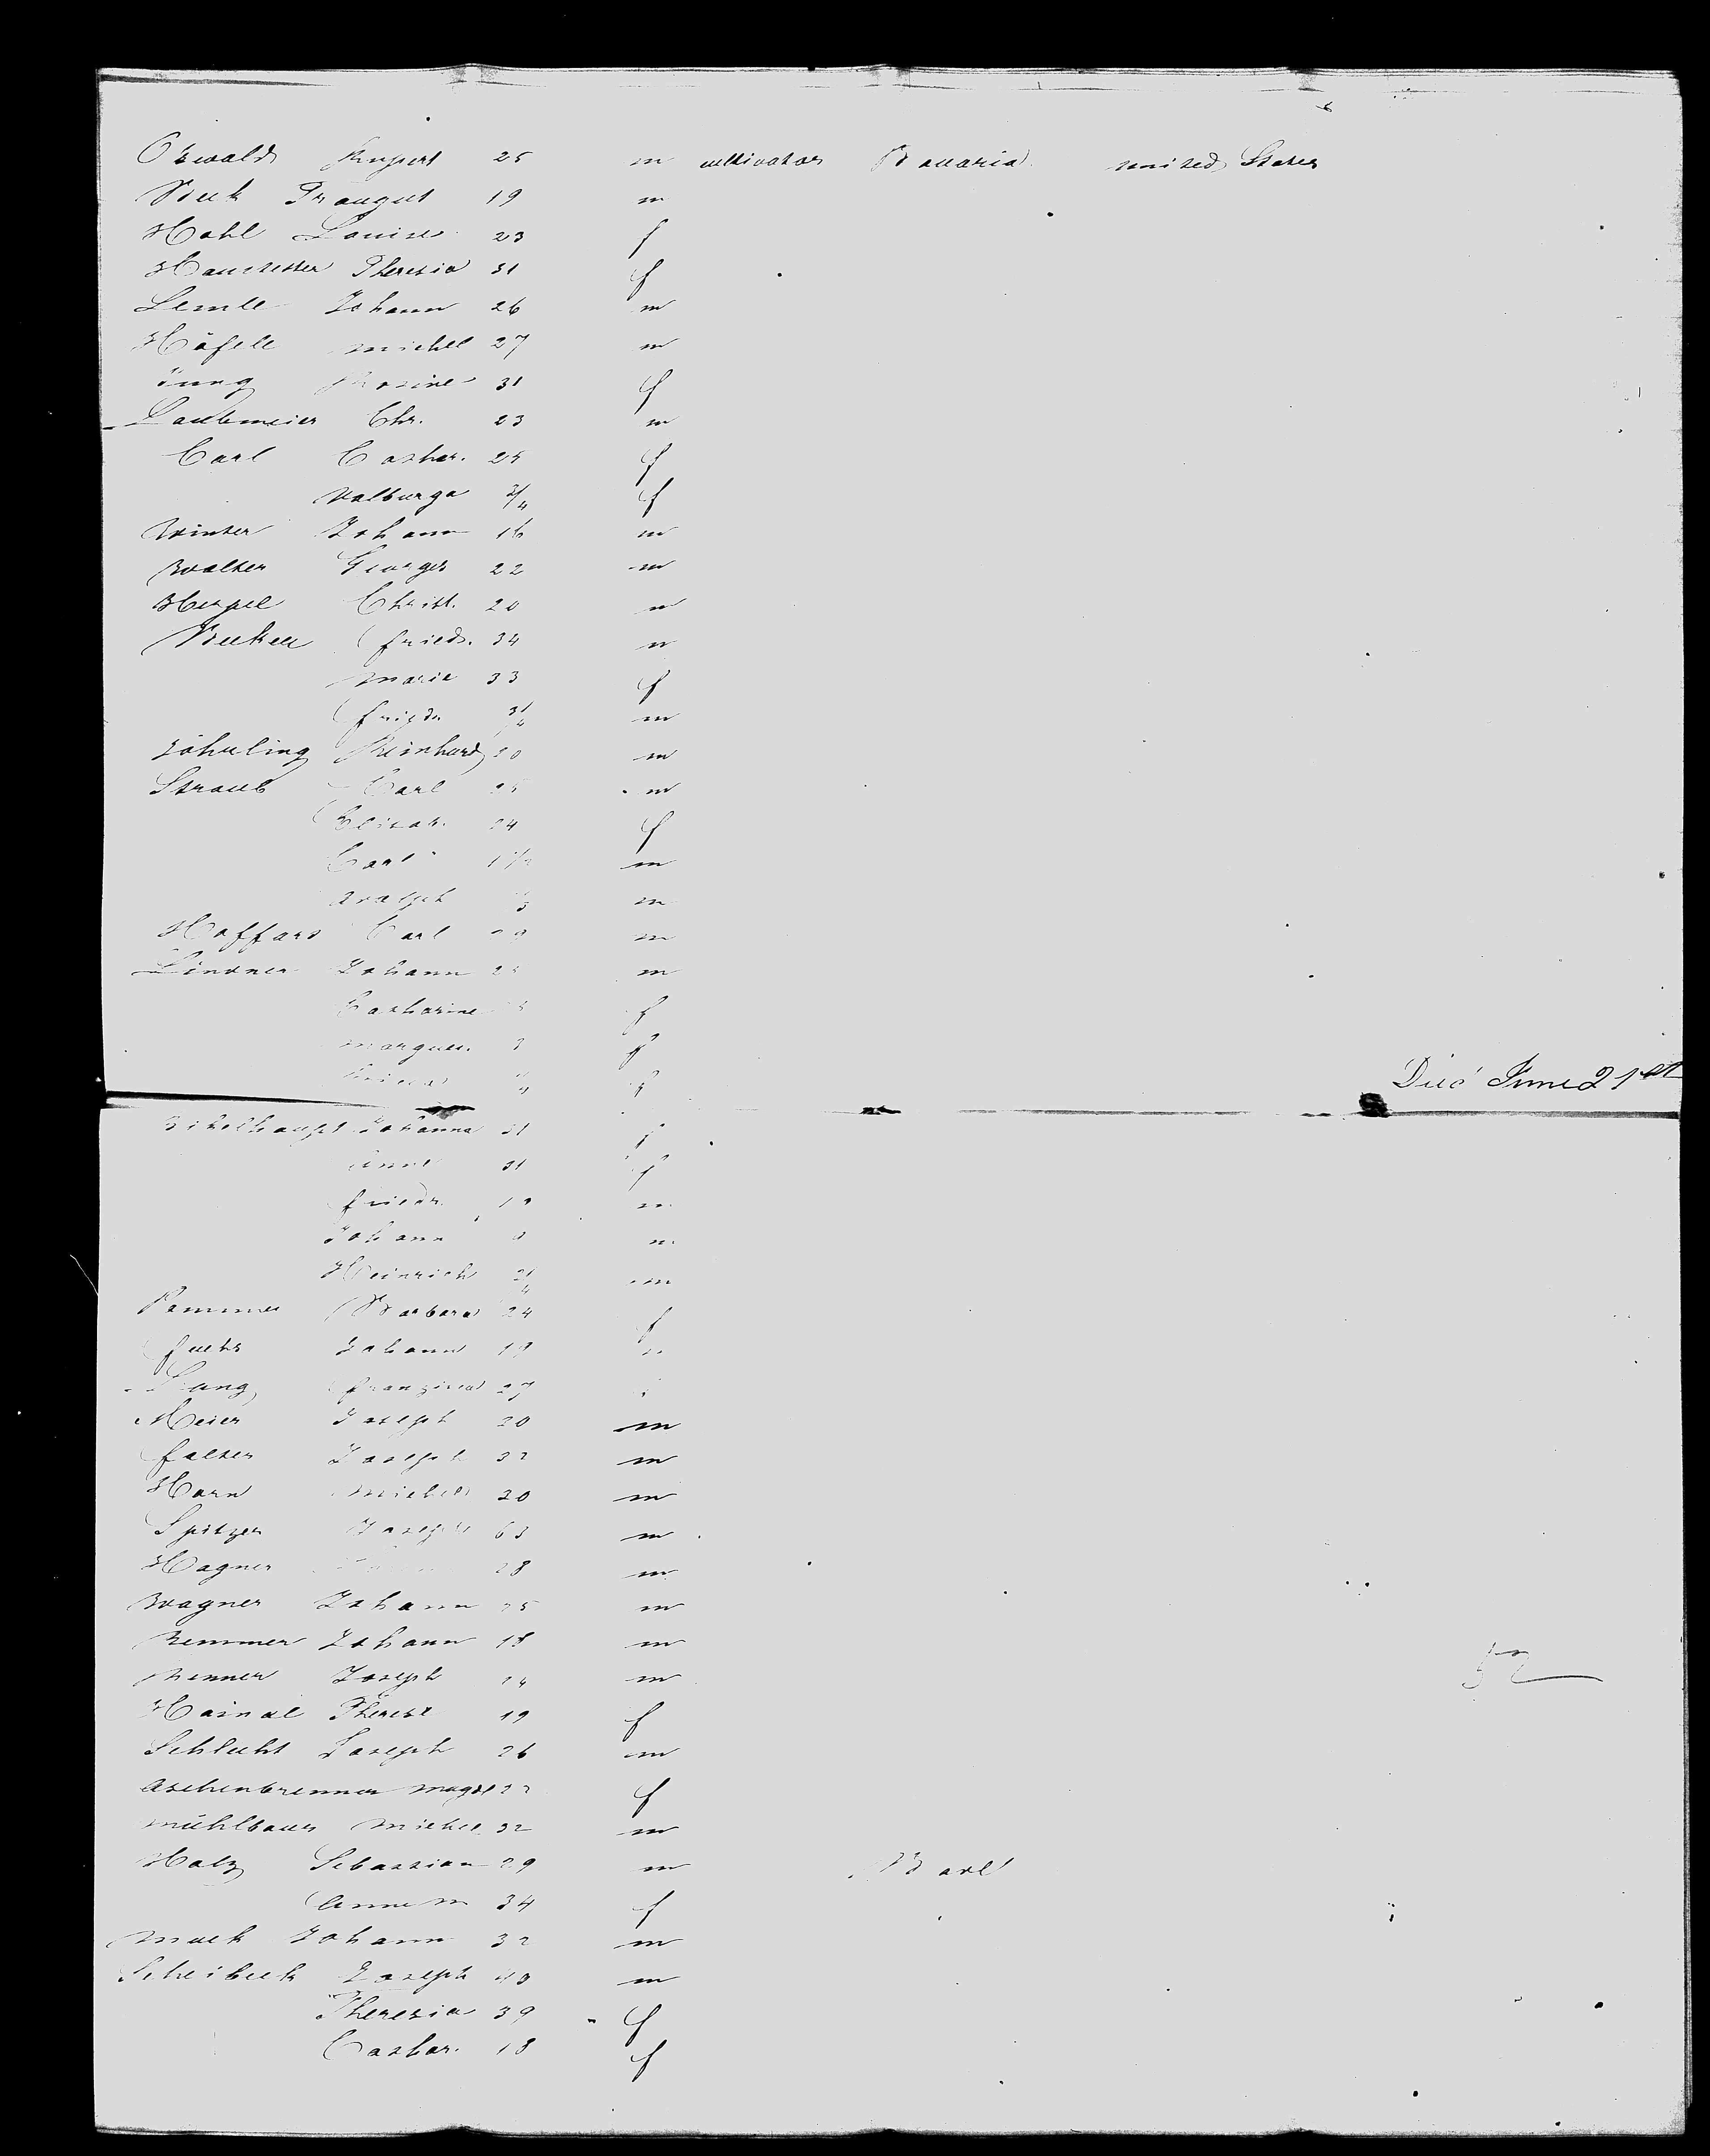 Oswald Rupert 25 m cultivator Bavaria united States
Beck Traugut 19 m
Hohl Louise 23 f
Theresia 31 f
Lemle Johann 26 m
Häfele Michel 27 m
Jung Rosine 31 f
Laubmeier Chr. 23 m
Carl Cathar. 25 f
Walburga 3/4 f
Winter Johann 16 m
Walter George 22 m
Christ. 20 m
Friedr. 34 m
Marie 33 f
Friedr. 3/4 m
Reinhard 20 m
Straub Carl 25 m
Elisab. 24 f
Carl m
Adolph m
Hoffard Carl 29 m
Lindner Johann m
Catharine f
Margar. f
f Died June 21st
Johanna 31 f
Anna f
Friedr. m
Johann m
Heinrich 3/4 m
Barbara 24 f
Fuchs Johann 19
Lang Franzisca 27
Meier Joseph 30 m
Falter Joseph 32 m
Horn Michel 20 m
Spitzer Joseph 63 m
Hagner 28 m
Wagner Johann 25 m
Remmer Johann 18 m
Renner Joseph 14 m 52
Haindl Therese 19 f
Schlecht Joseph 26 m
Aschenbrenner Magd 22 f
Mühlbauer Michel 32 m
Holz Sebastian 29 m
Anna M 34 f
Muck Johann 32 m
Scheibeck Joseph 40 m
Theresia 39 f
Cathar. 18 f